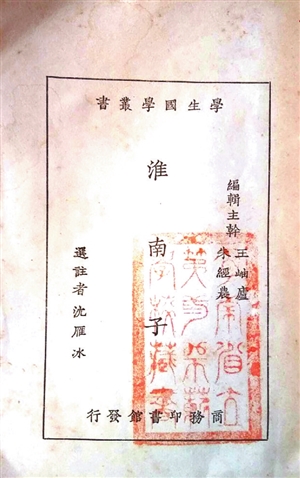 學生國學叢書
編輯主幹
王岫廬
朱經農
淮南子
選註者沈雁冰
商務印書館發行